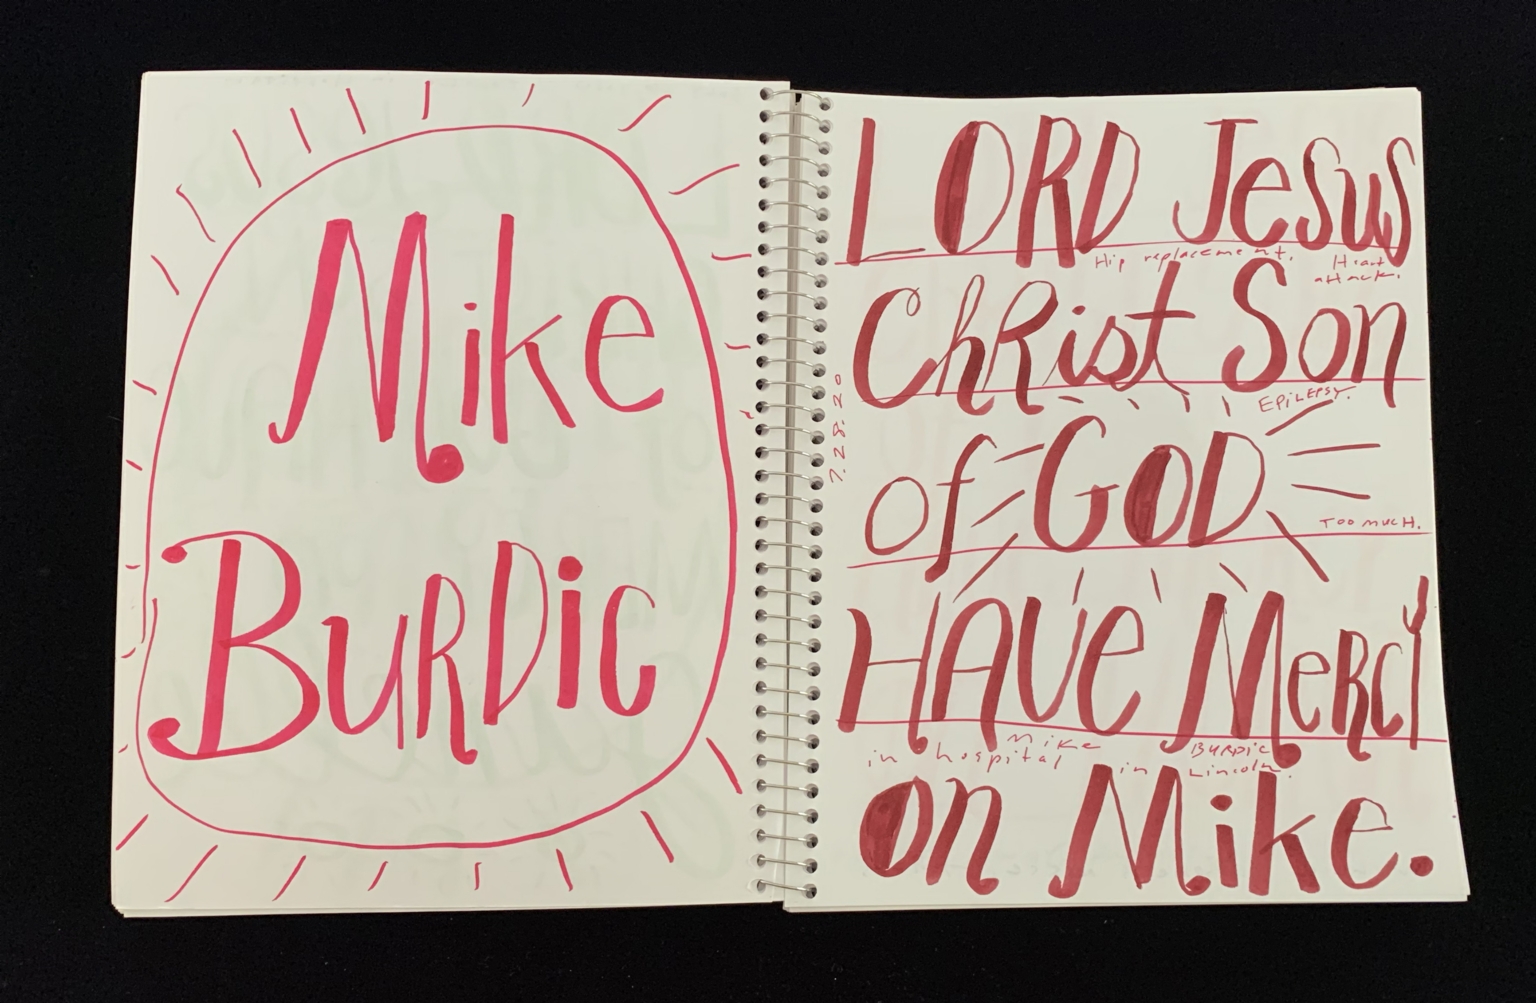 Mike
BURDIC
LORD Jesus
Hip replacement. Heart
attack.
ChRist Son
EPiLEPSY.
7.28.20
of GOD
TOO MUCH.
HAVE MeRCY
Mike BURDIC
in hospital in Lincoln.
on Mike.